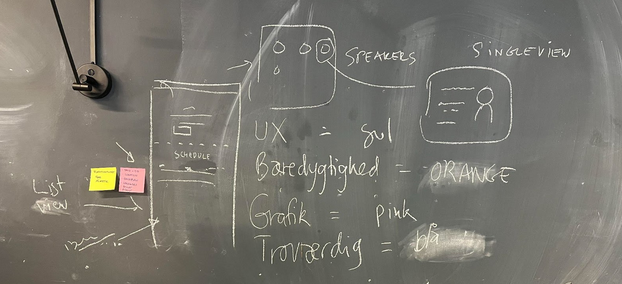 SPEAKERS
SINGLEVIEW
SCHEDULE
List
view
UX = gul
Bæredygtighed = ORANGE
Grafik = pink
Troværdig = blå